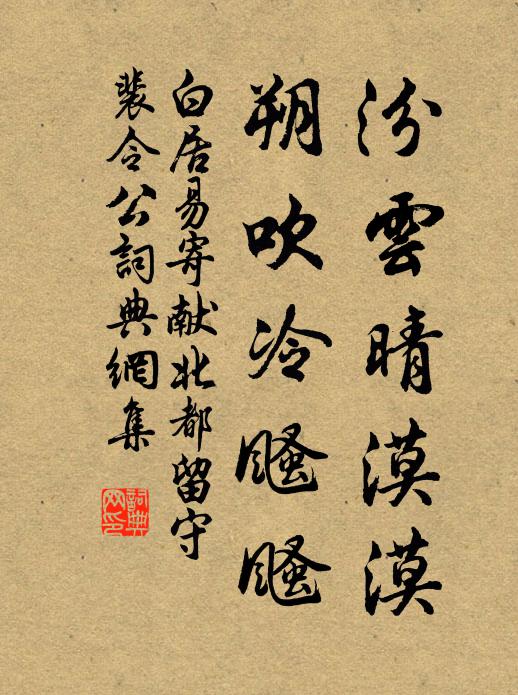 汾雲晴漠漠
朔吹冷颾颾
白居易寄献北都留守
裴令公詞典網集
詞典网印